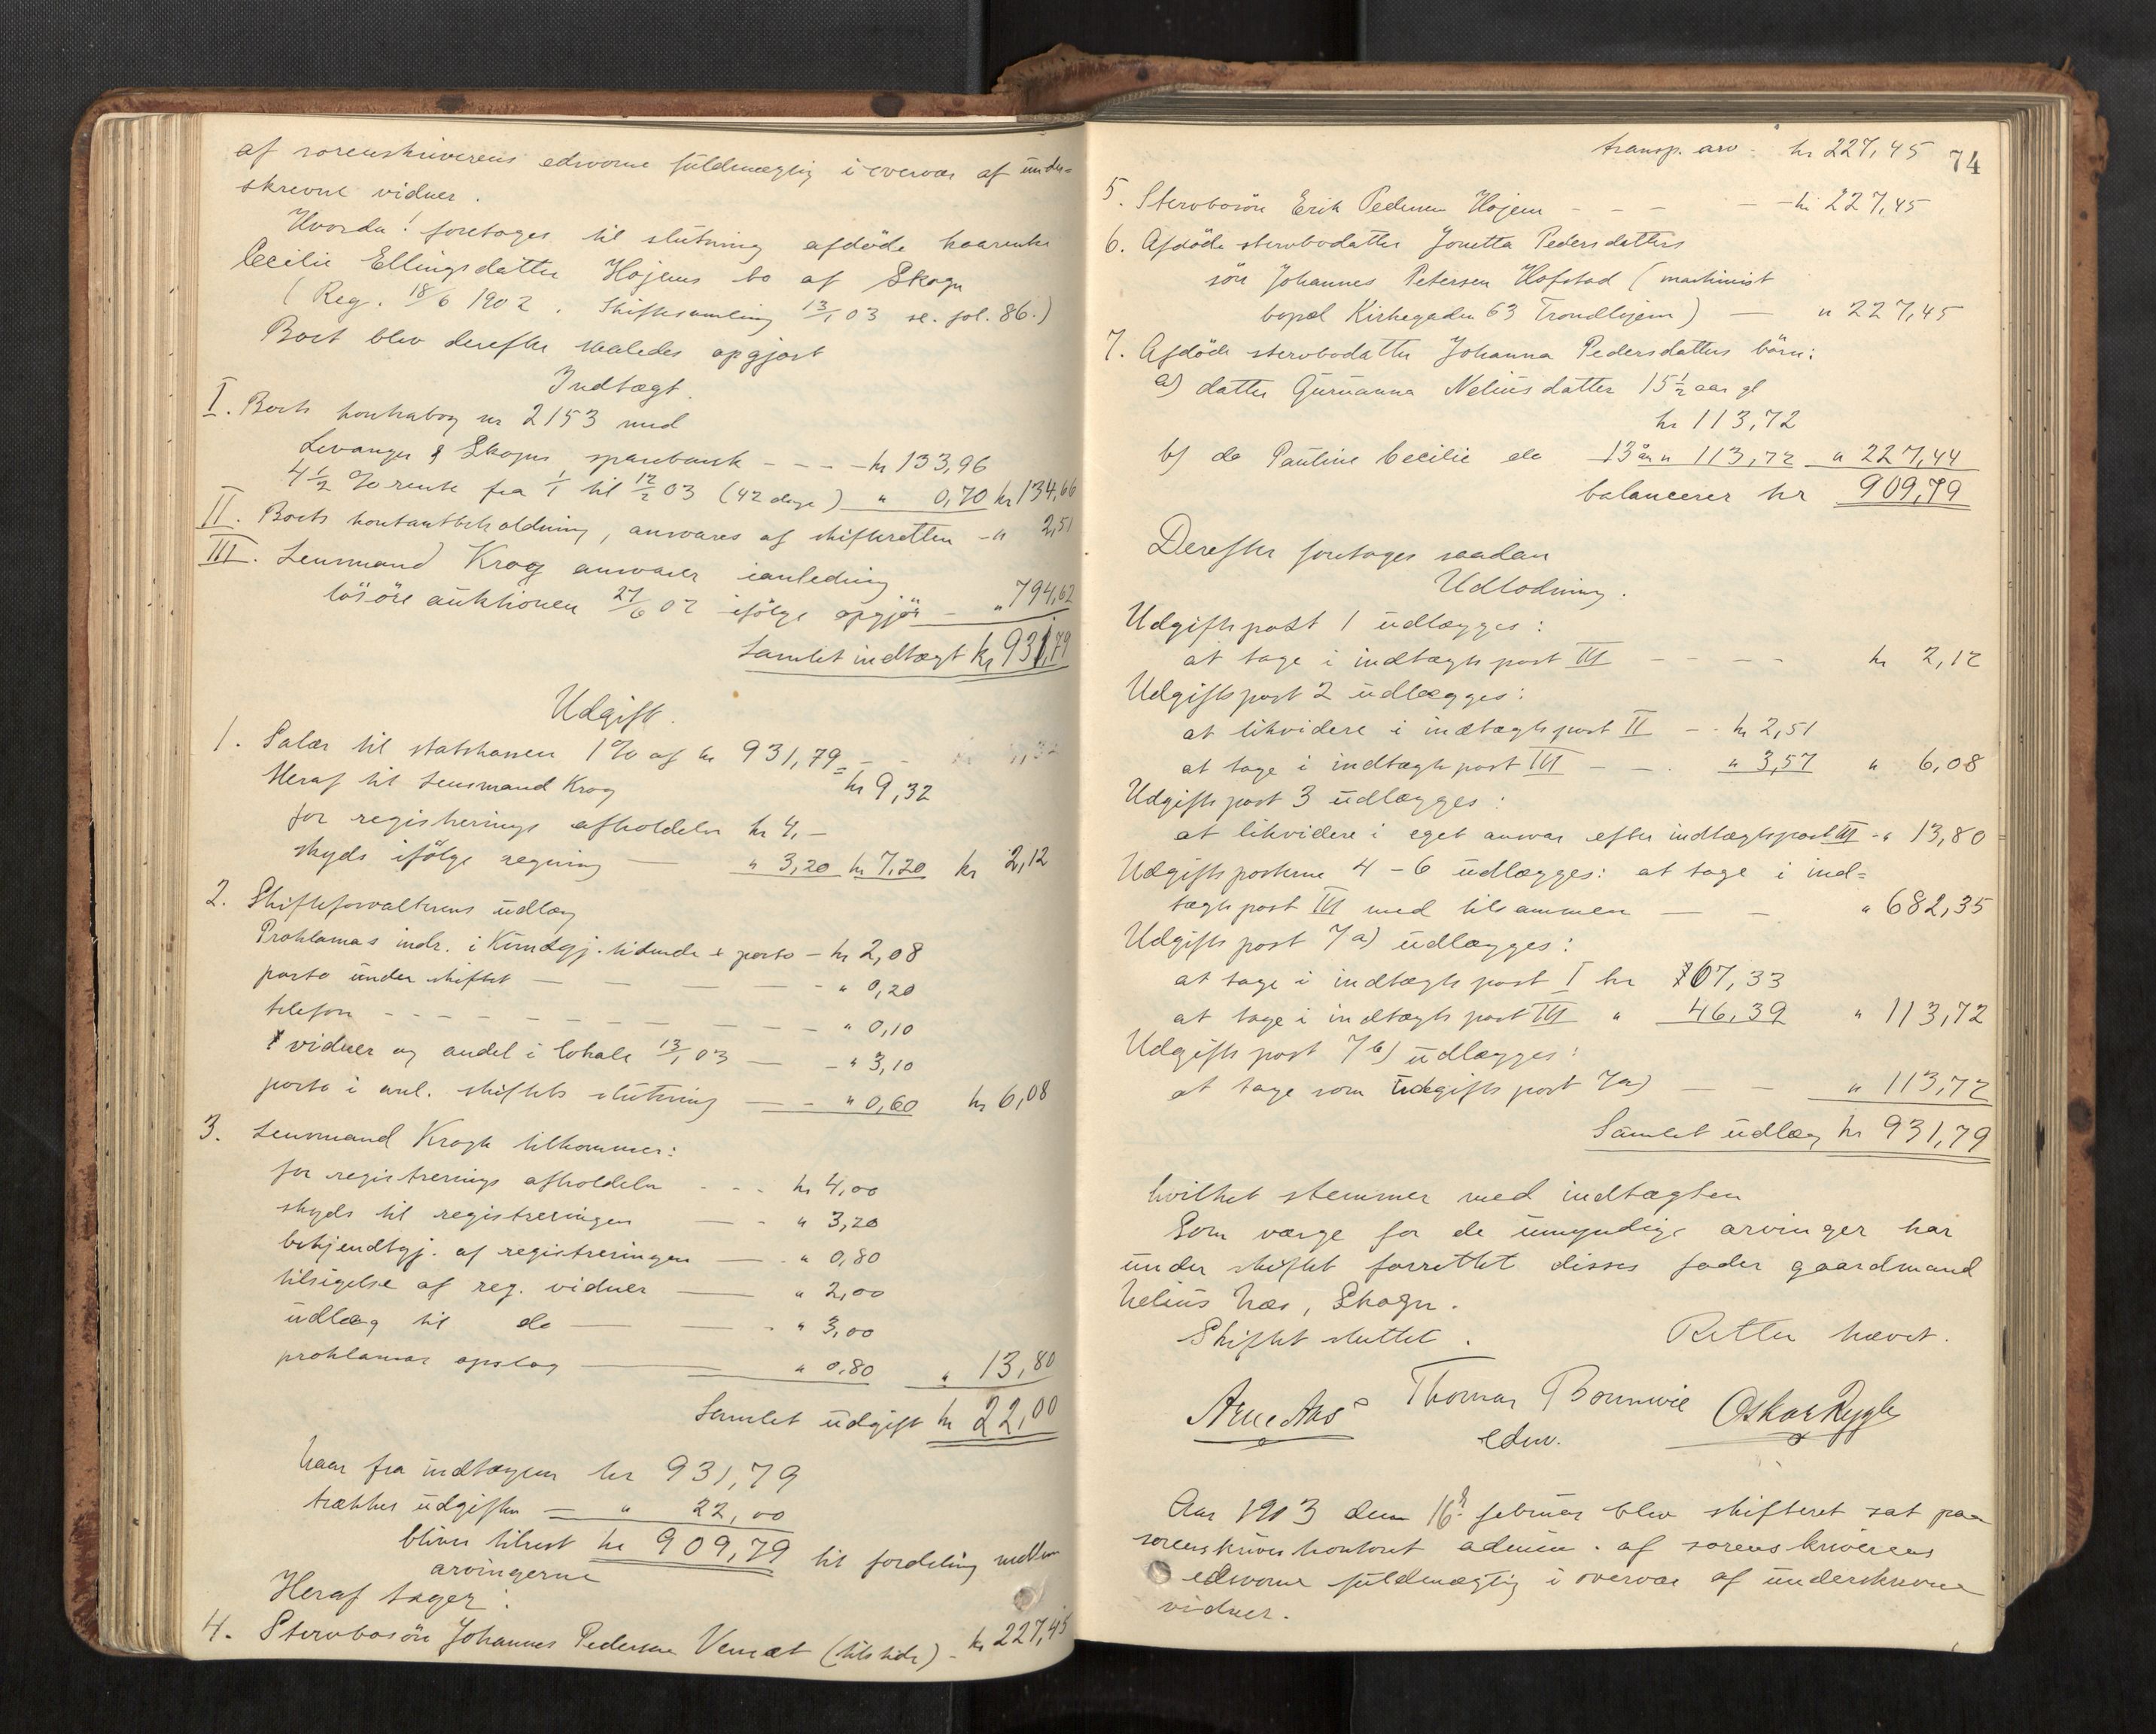 af sorenskriverens edsvorne fuldmægtig i overvær af under=
skrevne vidner.
Hvorda! foretoges til slutning afdöde kaarenke
Cecilie Ellingsdatter Höjems bo af Skogn
(Reg. 18/6 1902. Skiftesamling 13/1 03 se. fol. 86.)
Boet blev derefter saaledes opgjort
Indtægt.
I. Boets kontrabog nr 2153 med
Levanger & Skogns sparebank - - - - kr 133,96
4 1/2 % rente fra 1/1 til 12/2 03 (42 dage) " 0,70 kr 134,66
II. Boets kontantbeholdning, ansvares af skifteretten - " 2,51
III. Lensmand Krog ansvarer ianledning
lösöre auktionen 27/6 02 ifölge opgjör - " 794,62
Samlet indtægt kr 931,79
Udgift.
1. Salær til statskassen 1 % af kr 931,79 = - - kr 9,32
Heraf til Lensmand Krog kr 9,32
for registrerings afholdelse kr 4,-
skyds ifölge regning — " 3,20 kr 7,20 kr 2,12
2. Skifteforvalterens udlæg
Proklamas indr. i Kundgj. tidende & porto - kr 2,08
porto under skiftet — — — — - " 0,20
telefon - - - — — — — " 0,10
vidner og andel i lokale 13/1 03 — - " 3,10
porto i anl. skiftets slutning — - " 0,60 kr 6,08
3. Lensmand Krogh tilkommer:
for registrerings afholdelse - - - kr 4,00
skyds til registreringen — - " 3,20
bekjendtgj. af registreringen — - " 0,80
tilsigelse af reg. vidner — " 2,00
udlæg til do — — - " 3,00
proklamas opslag — " 0,80 " 13,80
Samlet udgift kr 22,00
Naar fra indtægten kr 931,79
trækkes udgiften — " 22,00
bliver tilrest kr 909,79 til fordeling mellem
arvingerne
Heraf tager:
4. Stervbosön Johannes Pedersen Venset (tilstede) - kr 227,45
74
transp. arv - kr 227,45
5. Stervbosön Erik Pedersen Höjem - - - - kr 227,45
6. Afdöde stervbodatter Jonetta Pedersdatters
sön Johannes Petersen Hofstad (maskinist
bopæl Kirkegaden 63 Trondhjem) — " 227,45
7. Afdöde stervbodatter Johanna Pedersdatters börn:
a) datter Guruanna Neliusdatter 15 1/2 aar gl
kr 113,72
b) do Pauline Cecilie do 13 år " 113,72 " 227,44
balancerer kr 909,79
Derefter foretoges saadan
Udlodning.
Udgiftspost 1 udlægges:
at tage i indtægtspost III - - - - kr 2,12
Udgiftspost 2 udlægges:
at likvidere i indtægtspost II - - kr 2,51
at tage i indtægtspost III - — " 3,57 " 6,08
Udgiftspost 3 udlægges:
at likvidere i eget ansvar efter indtægtspost III - " 13,80
Udgiftsposterne 4 - 6 udlægges: at tage i ind=
tægtspost III med tilsammen — - " 682,35
Udgiftspost 7a) udlægges:
at tage i indtægtspost I kr 67,33
at tage i indtægtspost III " 46,39 " 113,72
Udgiftspost 7b) udlægges:
at tage som udgiftspost 7a) — " 113,72
Samlet udlæg kr 931,79
hvilket stemmer med indtægten
Som værge for de umyndige arvinger har
under skiftet forrettet disses fader gaardmand
Nelius Næs, Skogn.
Skiftet sluttet. Retten hævet.
Arne Aas Thomas Bornwie Oskar Rygh
edsv.
Aar 1903 den 16d februar blev skifteret sat paa
sorenskriverkontoret admin. af sorenskriverens
edsvorne fuldmægtig i overvær af underskrevne
vidner.